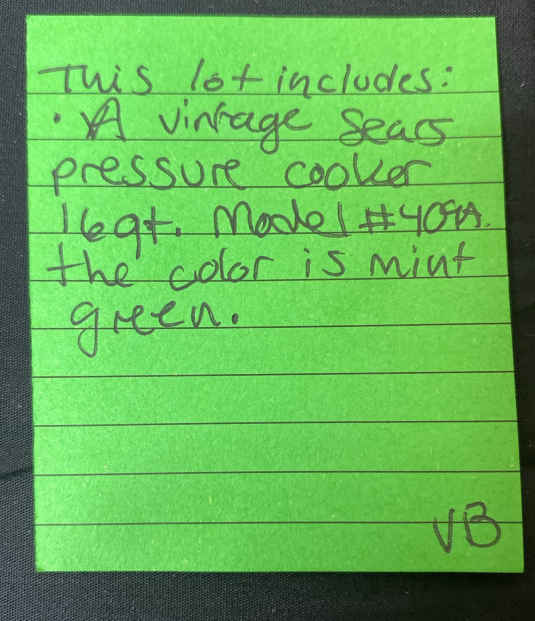 This lot includes:
• A vintage Sears
pressure cooker
16qt. Model
the color is mint
green.
VB